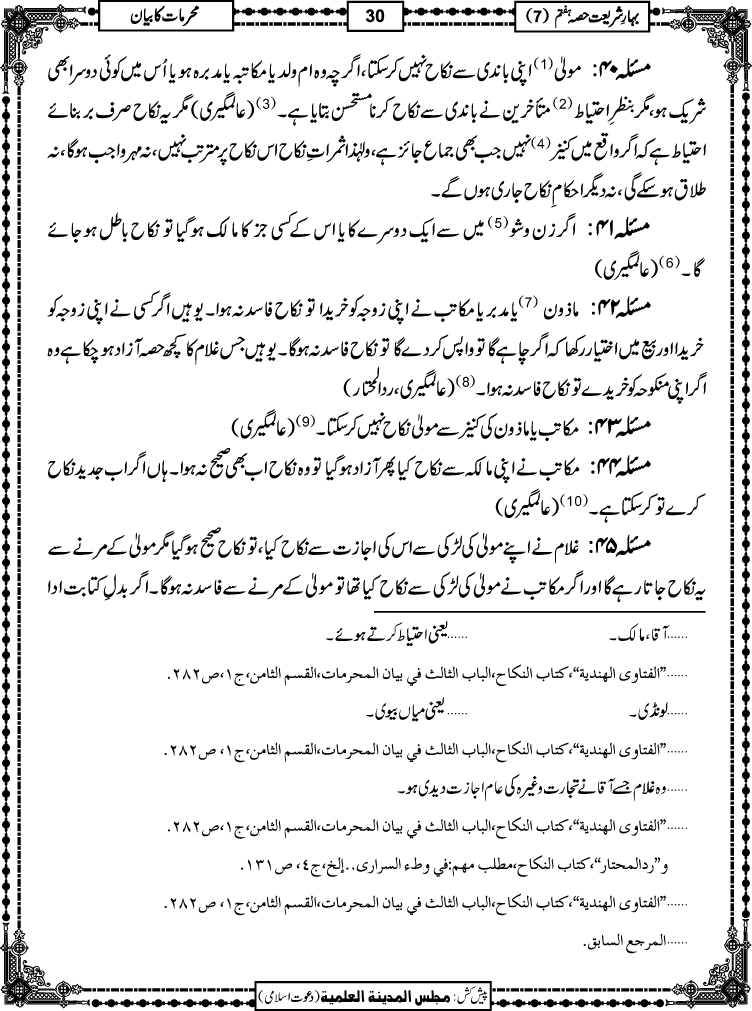 بہارِ شریعت حصہ ہفتم (7)
30
محرمات کا بیان
مسئلہ ۴۰: مولیٰ (1) اپنی باندی سے نکاح نہیں کر سکتا، اگرچہ وہ ام ولد یا مکاتبہ یا مدبرہ ہو یا اُس میں کوئی دوسرا بھی
شریک ہو، مگر بنظرِ احتیاط (2) متأخرین نے باندی سے نکاح کرنا مستحسن بتایا ہے۔ (3) (عالمگیری) مگر یہ نکاح صرف بر بنائے
احتیاط ہے کہ اگر واقع میں کنیز (4) نہیں جب بھی جماع جائز ہے، ولہٰذا ثمراتِ نکاح اس نکاح پر مترتب نہیں، نہ مہر واجب ہوگا، نہ
طلاق ہو سکے گی، نہ دیگر احکامِ نکاح جاری ہوں گے۔
مسئلہ ۴۱: اگر زن و شو (5) میں سے ایک دوسرے کا یا اس کے کسی جز کا مالک ہوگیا تو نکاح باطل ہو جائے
گا۔ (6) (عالمگیری)
مسئلہ ۴۲: ماذون (7) یا مدبر یا مکاتب نے اپنی زوجہ کو خریدا تو نکاح فاسد نہ ہوا۔ یوہیں اگر کسی نے اپنی زوجہ کو
خریدا اور بیع میں اختیار رکھا کہ اگر چاہے گا تو واپس کر دے گا تو نکاح فاسد نہ ہوگا۔ یوہیں جس غلام کا کچھ حصہ آزاد ہو چکا ہے وہ
اگر اپنی منکوحہ کو خریدے تو نکاح فاسد نہ ہوا۔ (8) (عالمگیری، ردالمحتار)
مسئلہ ۴۳: مکاتب یا ماذون کی کنیز سے مولیٰ نکاح نہیں کر سکتا۔ (9) (عالمگیری)
مسئلہ ۴۴: مکاتب نے اپنی مالکہ سے نکاح کیا پھر آزاد ہوگیا تو وہ نکاح اب بھی صحیح نہ ہوا۔ ہاں اگر اب جدید نکاح
کرے تو کر سکتا ہے۔ (10) (عالمگیری)
مسئلہ ۴۵: غلام نے اپنے مولیٰ کی لڑکی سے اس کی اجازت سے نکاح کیا، تو نکاح صحیح ہوگیا مگر مولیٰ کے مرنے سے
یہ نکاح جاتا رہے گا اور اگر مکاتب نے مولیٰ کی لڑکی سے نکاح کیا تھا تو مولیٰ کے مرنے سے فاسد نہ ہوگا۔ اگر بدلِ کتابت ادا
......آقا، مالک۔ ......یعنی احتیاط کرتے ہوئے۔
......”الفتاوی الھندیة“،کتاب النکاح،الباب الثالث في بیان المحرمات،القسم الثامن،ج۱،ص۲۸۲.
......لونڈی۔ ......یعنی میاں بیوی۔
......”الفتاوی الھندیة“،کتاب النکاح،الباب الثالث في بیان المحرمات،القسم الثامن،ج۱، ص۲۸۲.
......وہ غلام جسے آقا نے تجارت وغیرہ کی عام اجازت دیدی ہو۔
......”الفتاوی الھندیة“،کتاب النکاح،الباب الثالث في بیان المحرمات،القسم الثامن،ج۱،ص۲۸۲.
و”ردالمحتار“،کتاب النکاح،مطلب مھم:في وطء السراری..إلخ،ج٤، ص۱۳۱.
......”الفتاوی الھندیة“،کتاب النکاح،الباب الثالث في بیان المحرمات،القسم الثامن،ج۱، ص۲۸۲.
......المرجع السابق.
پیش کش: مجلس المدینة العلمیة (دعوت اسلامی)